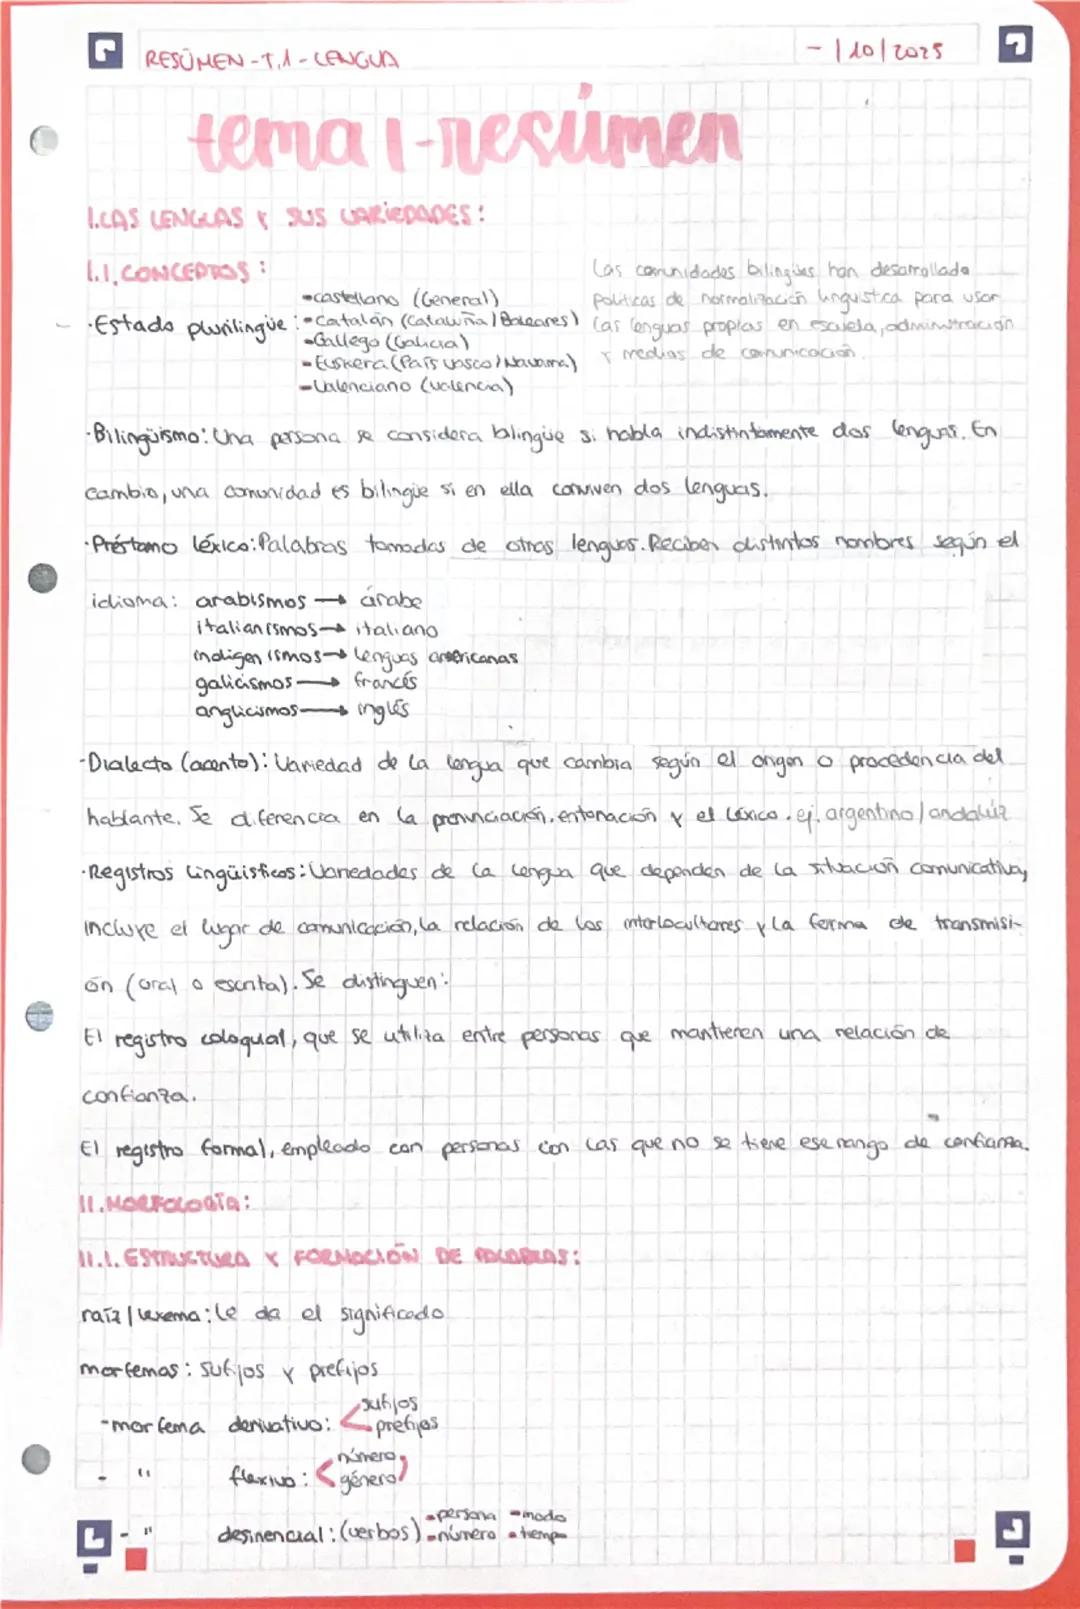 RESÚMEN - T.1 - LENGUA
- | 10 | 2025
tema 1 - resúmen
I. LAS LENGUAS Y SUS VARIEDADES:
I.I. CONCEPTOS:
Las comunidades bilingües han desarrollado
políticas de normalización linguística para usar
las lenguas propias en escuela, administración
y medios de comunicación.
- castellano (General)
· Estado plurilingüe: - Catalán (Cataluña / Baleares)
- Gallego (Galicia)
- Euskera (País Vasco / Navarra)
- Valenciano (Valencia)
· Bilingüismo: Una persona se considera bilingüe si habla indistintamente dos lenguas. En
cambio, una comunidad es bilingüe si en ella conviven dos lenguas.
· Préstamo léxico: Palabras tomadas de otras lenguas. Reciben distintos nombres según el
idioma: arabismos → árabe
italianismos → italiano
indigenismos → lenguas americanas
galicismos → francés
anglicismos → inglés
· Dialecto (acento): Variedad de la lengua que cambia según el origen o procedencia del
hablante. Se diferencia en la pronunciación, entonación y el léxico. ej. argentino / andaluz
· Registros Lingüísticos: Variedades de la lengua que dependen de la situación comunicativa,
incluye el lugar de comunicación, la relación de los interlocultores y la forma de transmisi-
ón (oral o escrita). Se distinguen:
El registro coloquial, que se utiliza entre personas que mantienen una relación de
confianza.
El registro formal, empleado con personas con las que no se tiene ese rango de confianza.
II. MORFOLOGÍA:
II.I. ESTRUCTURA Y FORMACIÓN DE PALABRAS:
raíz / lexema: le da el significado
morfemas: sufijos y prefijos
- morfema derivativo: < sufijos
prefijos
- " flexivo: < número
género
- " desinencial: (verbos) - persona - modo
- número - tiempo